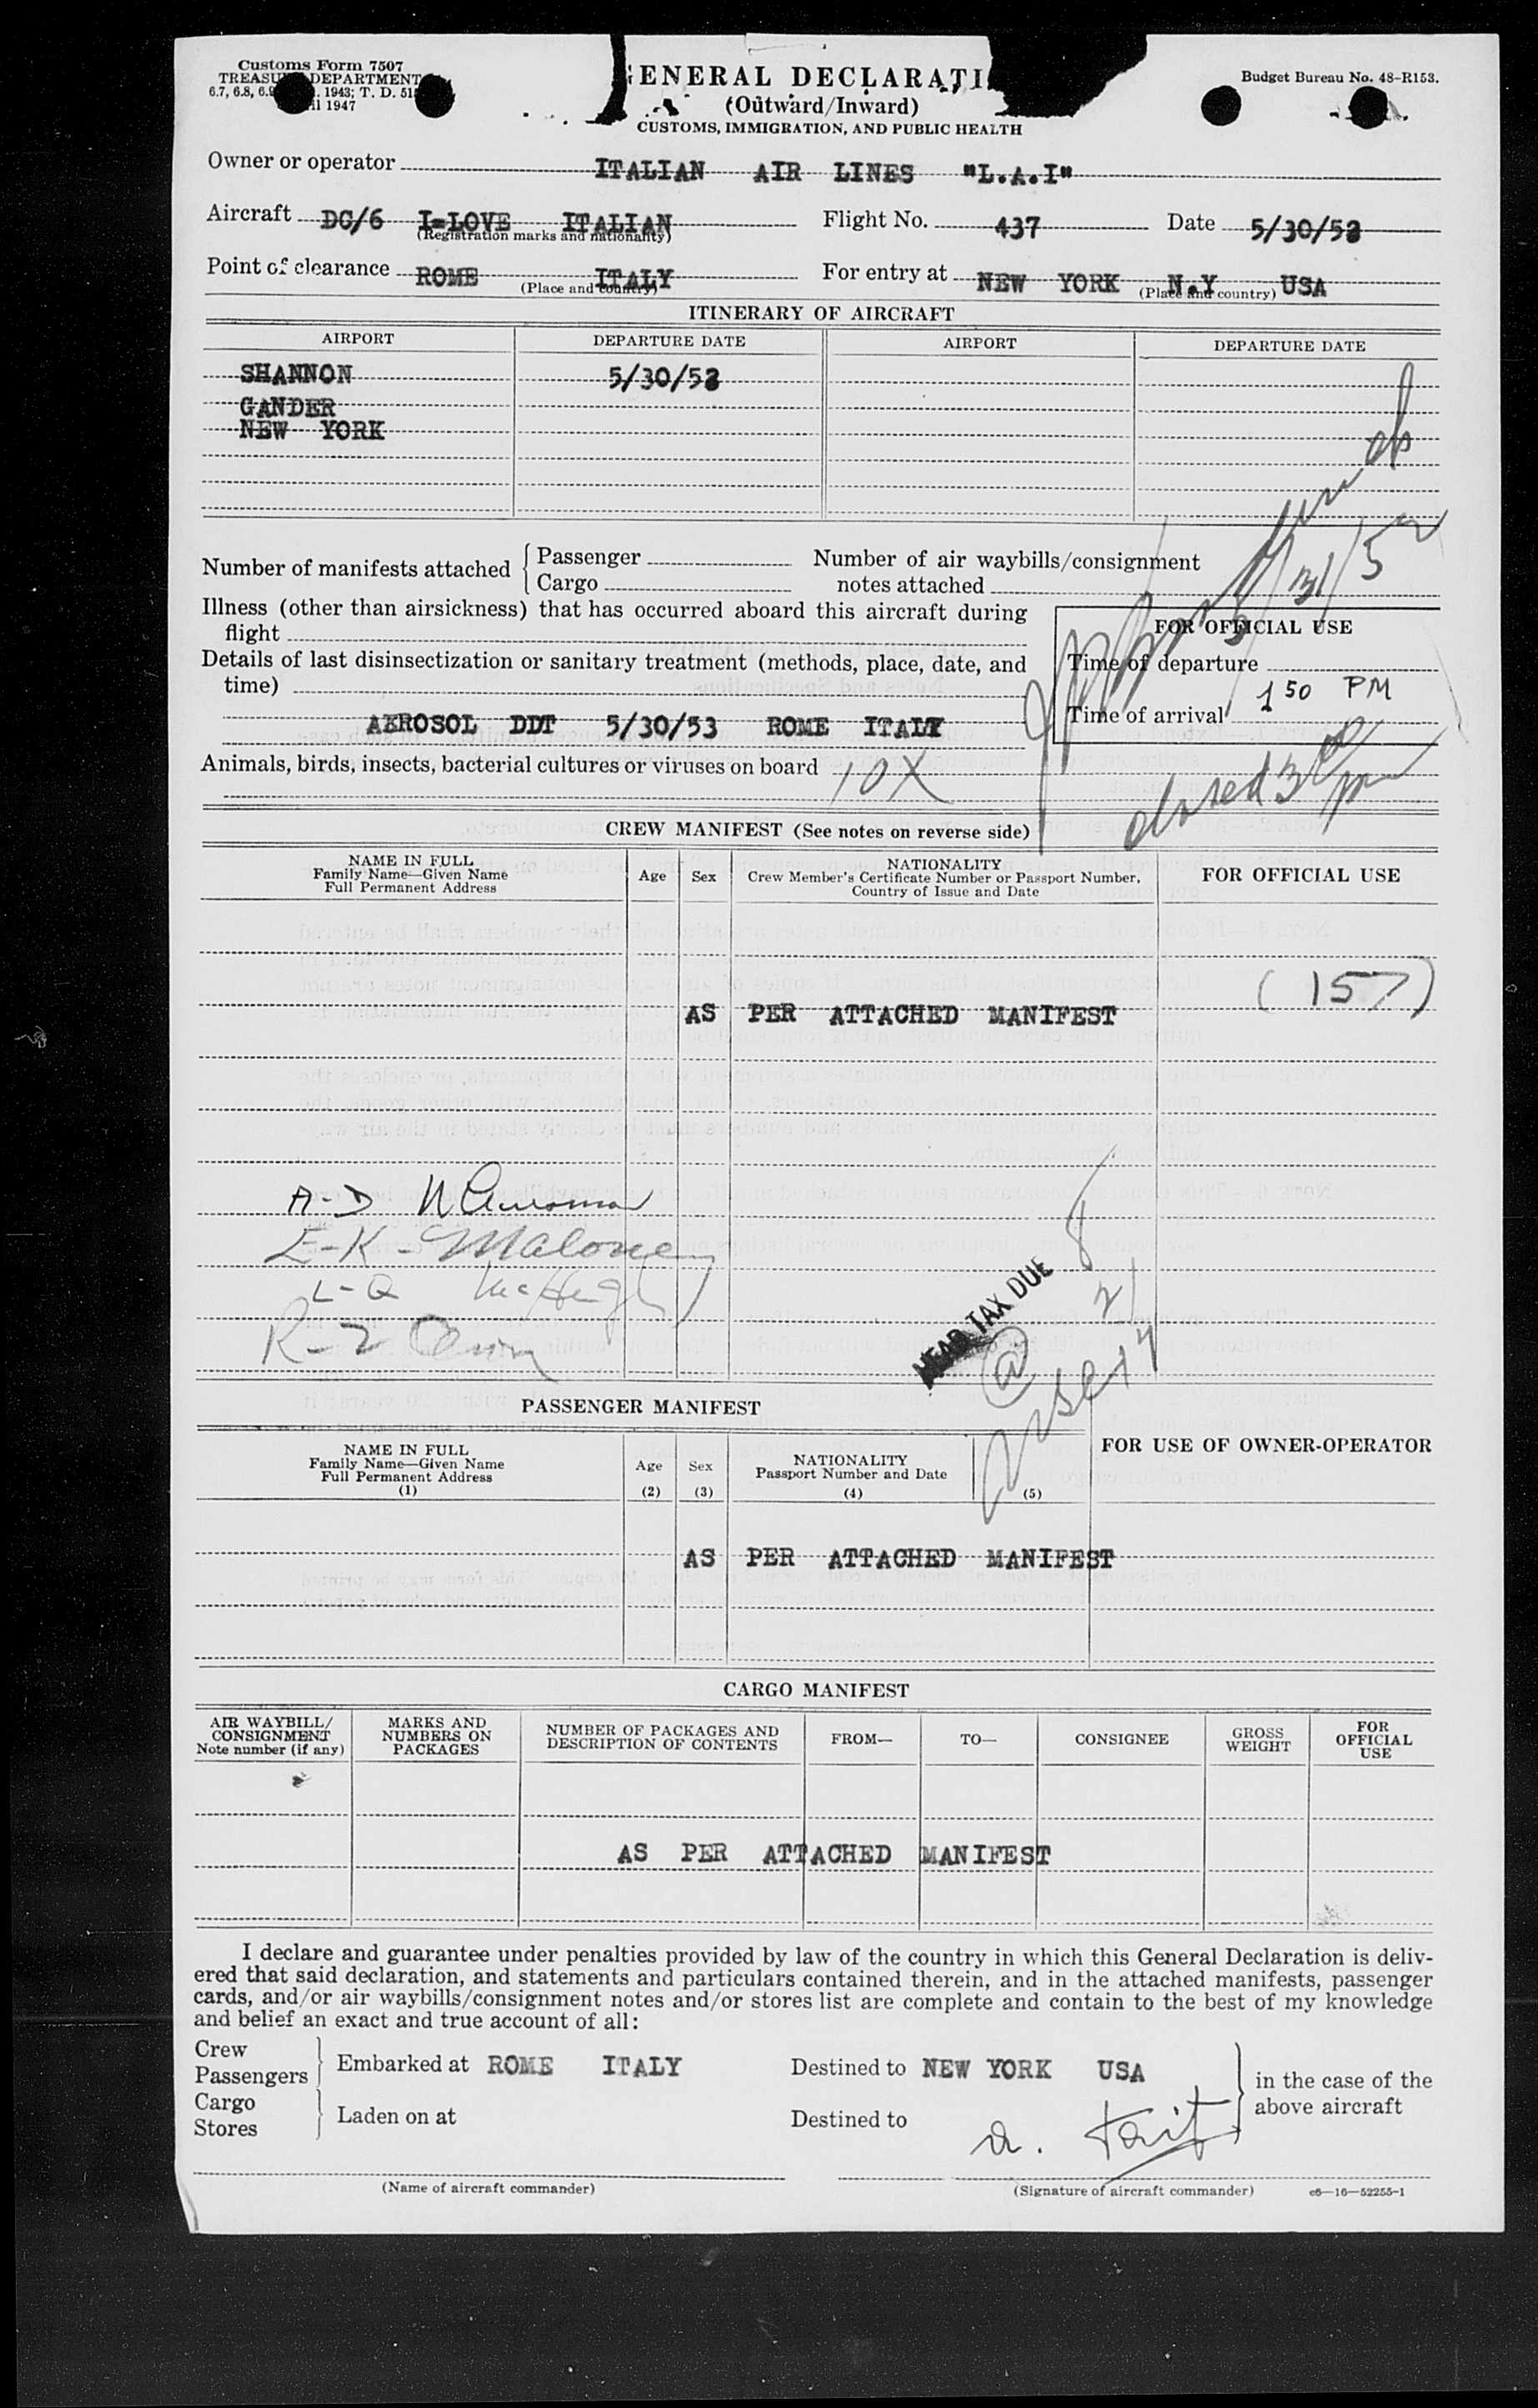 Customs Form 7507
TREASU DEPARTMENT
6.7, 6.8, 6.9 . 1943; T. D. 51
il 1947
GENERAL DECLARATI
(Outward/Inward)
CUSTOMS, IMMIGRATION, AND PUBLIC HEALTH
Budget Bureau No. 48-R153.
Owner or operator ITALIAN AIR LINES "L.A.I"
Aircraft DC/6 I-LOVE ITALIAN Flight No. 437 Date 5/30/52
(Registration marks and nationality)
Point of clearance ROME ITALY For entry at NEW YORK N.Y USA
(Place and country) (Place and country)
ITINERARY OF AIRCRAFT
AIRPORT DEPARTURE DATE AIRPORT DEPARTURE DATE
SHANNON 5/30/52
GANDER
NEW YORK
Number of manifests attached { Passenger
Cargo
Number of air waybills/consignment
notes attached
31/52
Illness (other than airsickness) that has occurred aboard this aircraft during
flight
Details of last disinsectization or sanitary treatment (methods, place, date, and
time)
AEROSOL DDT 5/30/53 ROME ITALY
FOR OFFICIAL USE
Time of departure
Time of arrival 1 50 PM
Animals, birds, insects, bacterial cultures or viruses on board 10X
closed 3 00 pm
CREW MANIFEST (See notes on reverse side)
NAME IN FULL
Family Name—Given Name
Full Permanent Address
Age Sex
NATIONALITY
Crew Member's Certificate Number or Passport Number,
Country of Issue and Date
FOR OFFICIAL USE
AS PER ATTACHED MANIFEST (157)
A-D
E-K - Maloney
L-Q McHugh
R-Z
HEAD TAX DUE 8
@
PASSENGER MANIFEST
NAME IN FULL
Family Name—Given Name
Full Permanent Address
(1)
Age
(2)
Sex
(3)
NATIONALITY
Passport Number and Date
(4)
(5)
FOR USE OF OWNER-OPERATOR
AS PER ATTACHED MANIFEST
CARGO MANIFEST
AIR WAYBILL/
CONSIGNMENT
Note number (if any)
MARKS AND
NUMBERS ON
PACKAGES
NUMBER OF PACKAGES AND
DESCRIPTION OF CONTENTS
FROM—
TO—
CONSIGNEE
GROSS
WEIGHT
FOR
OFFICIAL
USE
AS PER ATTACHED MANIFEST
I declare and guarantee under penalties provided by law of the country in which this General Declaration is deliv-
ered that said declaration, and statements and particulars contained therein, and in the attached manifests, passenger
cards, and/or air waybills/consignment notes and/or stores list are complete and contain to the best of my knowledge
and belief an exact and true account of all:
Crew
Passengers } Embarked at ROME ITALY Destined to NEW YORK USA
Cargo
Stores } Laden on at Destined to
in the case of the
above aircraft
a. Tait
(Name of aircraft commander) (Signature of aircraft commander) c6—16—52255-1